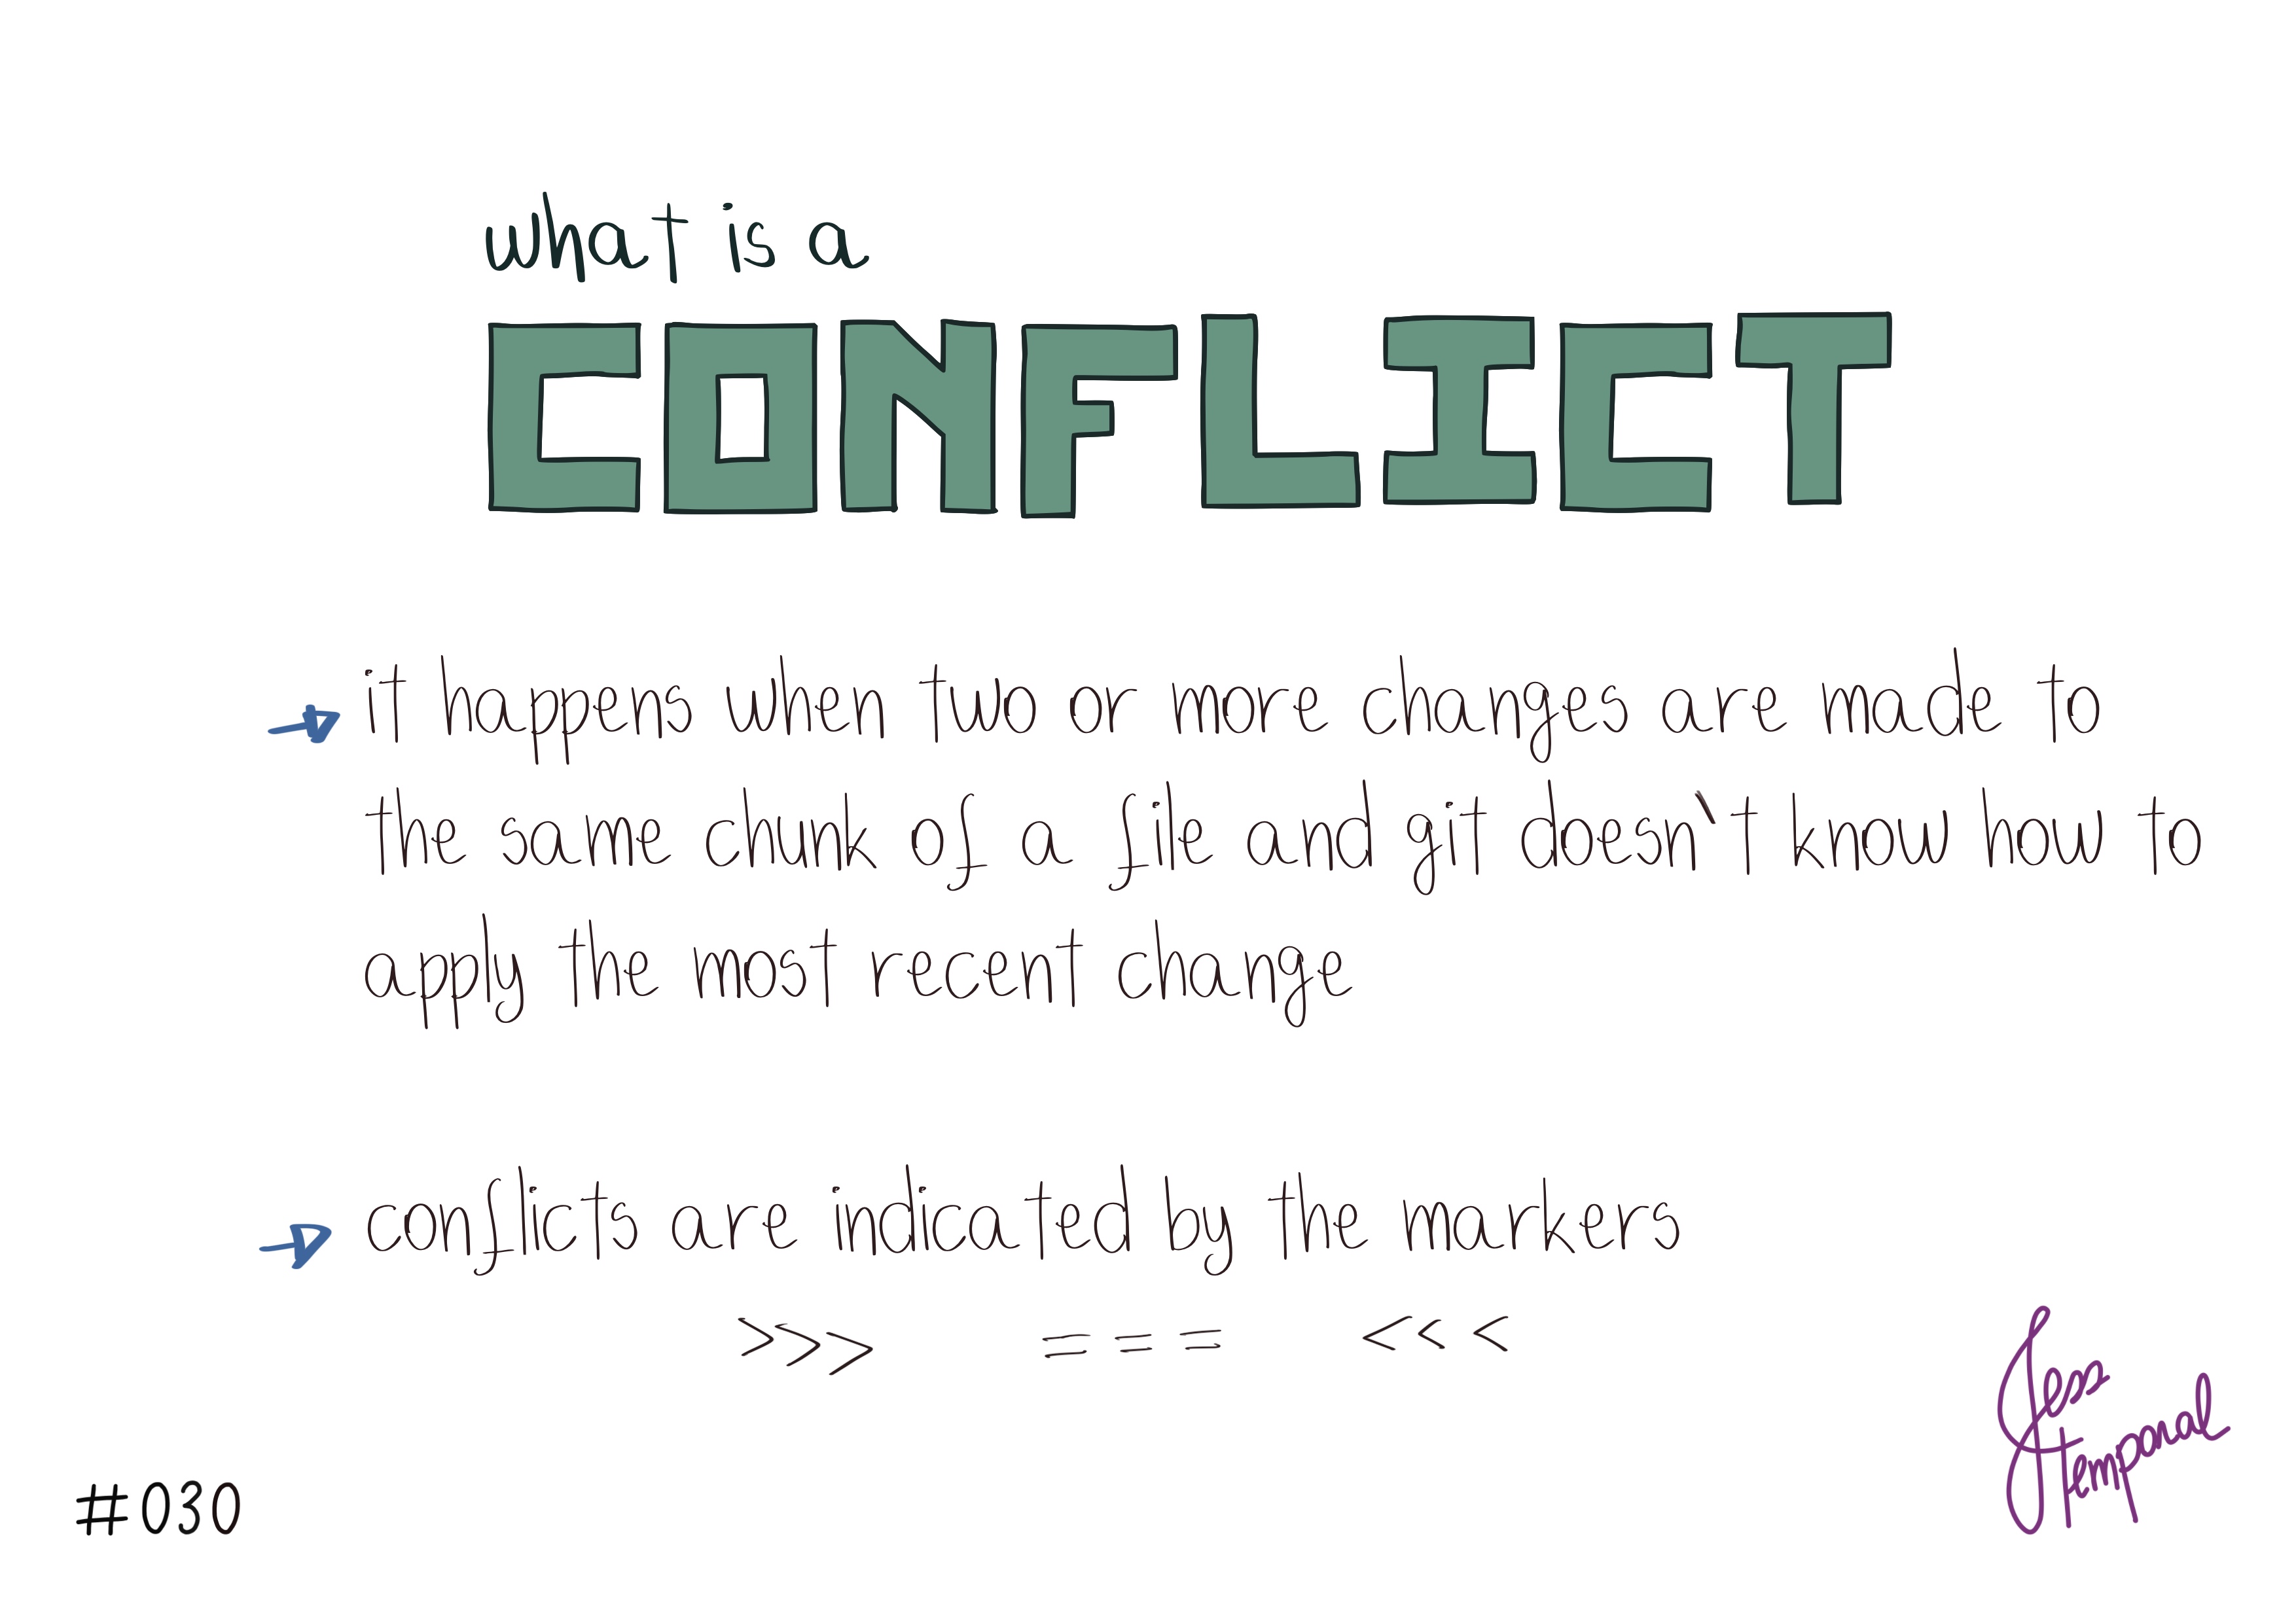 what is a
CONFLICT
it happens when two or more changes are made to
the same chunk of a file and git doesn`t know how to
apply the most recent change
conflicts are indicated by the markers
>>> === <<<
Jess
temporal
#030